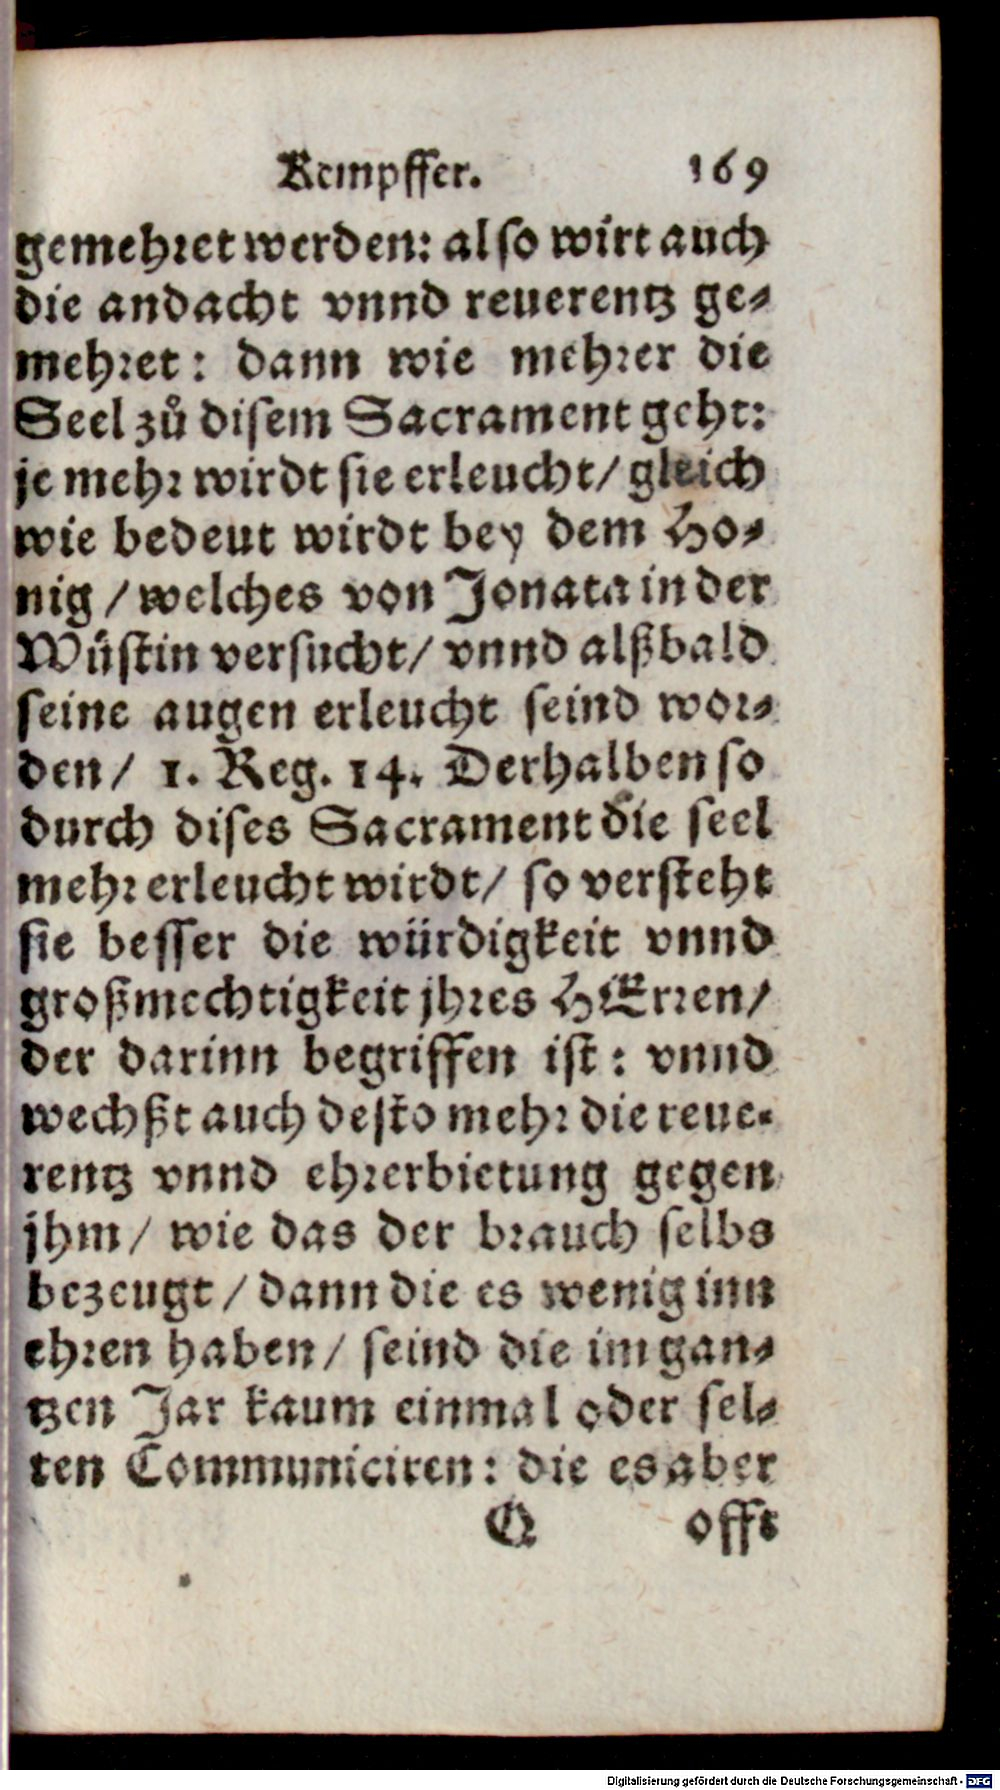 Kempffer. 169
gemehret werden: also wirt auch
die andacht vnnd reuerentz ge-
mehret: dann wie mehrer die
Seel zů disem Sacrament geht:
je mehr wirdt sie erleucht/ gleich
wie bedeut wirdt bey dem Ho-
nig / welches von Jonata in der
Wüstin versucht/ vnnd alßbald
seine augen erleucht seind wor-
den/ 1. Reg. 14. Derhalben so
durch dises Sacrament die seel
mehr erleucht wirdt/ so versteht
sie besser die würdigkeit vnnd
großmechtigkeit jhres HErren/
der darinn begriffen ist: vnnd
wechßt auch desto mehr die reue-
rentz vnnd ehrerbietung gegen
jhm/ wie das der brauch selbs
bezeugt / dann die es wenig inn
ehren haben/ seind die im gan-
tzen Jar kaum einmal oder sel-
ten Communiciren: die es aber
Q offt
Digitalisierung gefördert durch die Deutsche Forschungsgemeinschaft - DFG